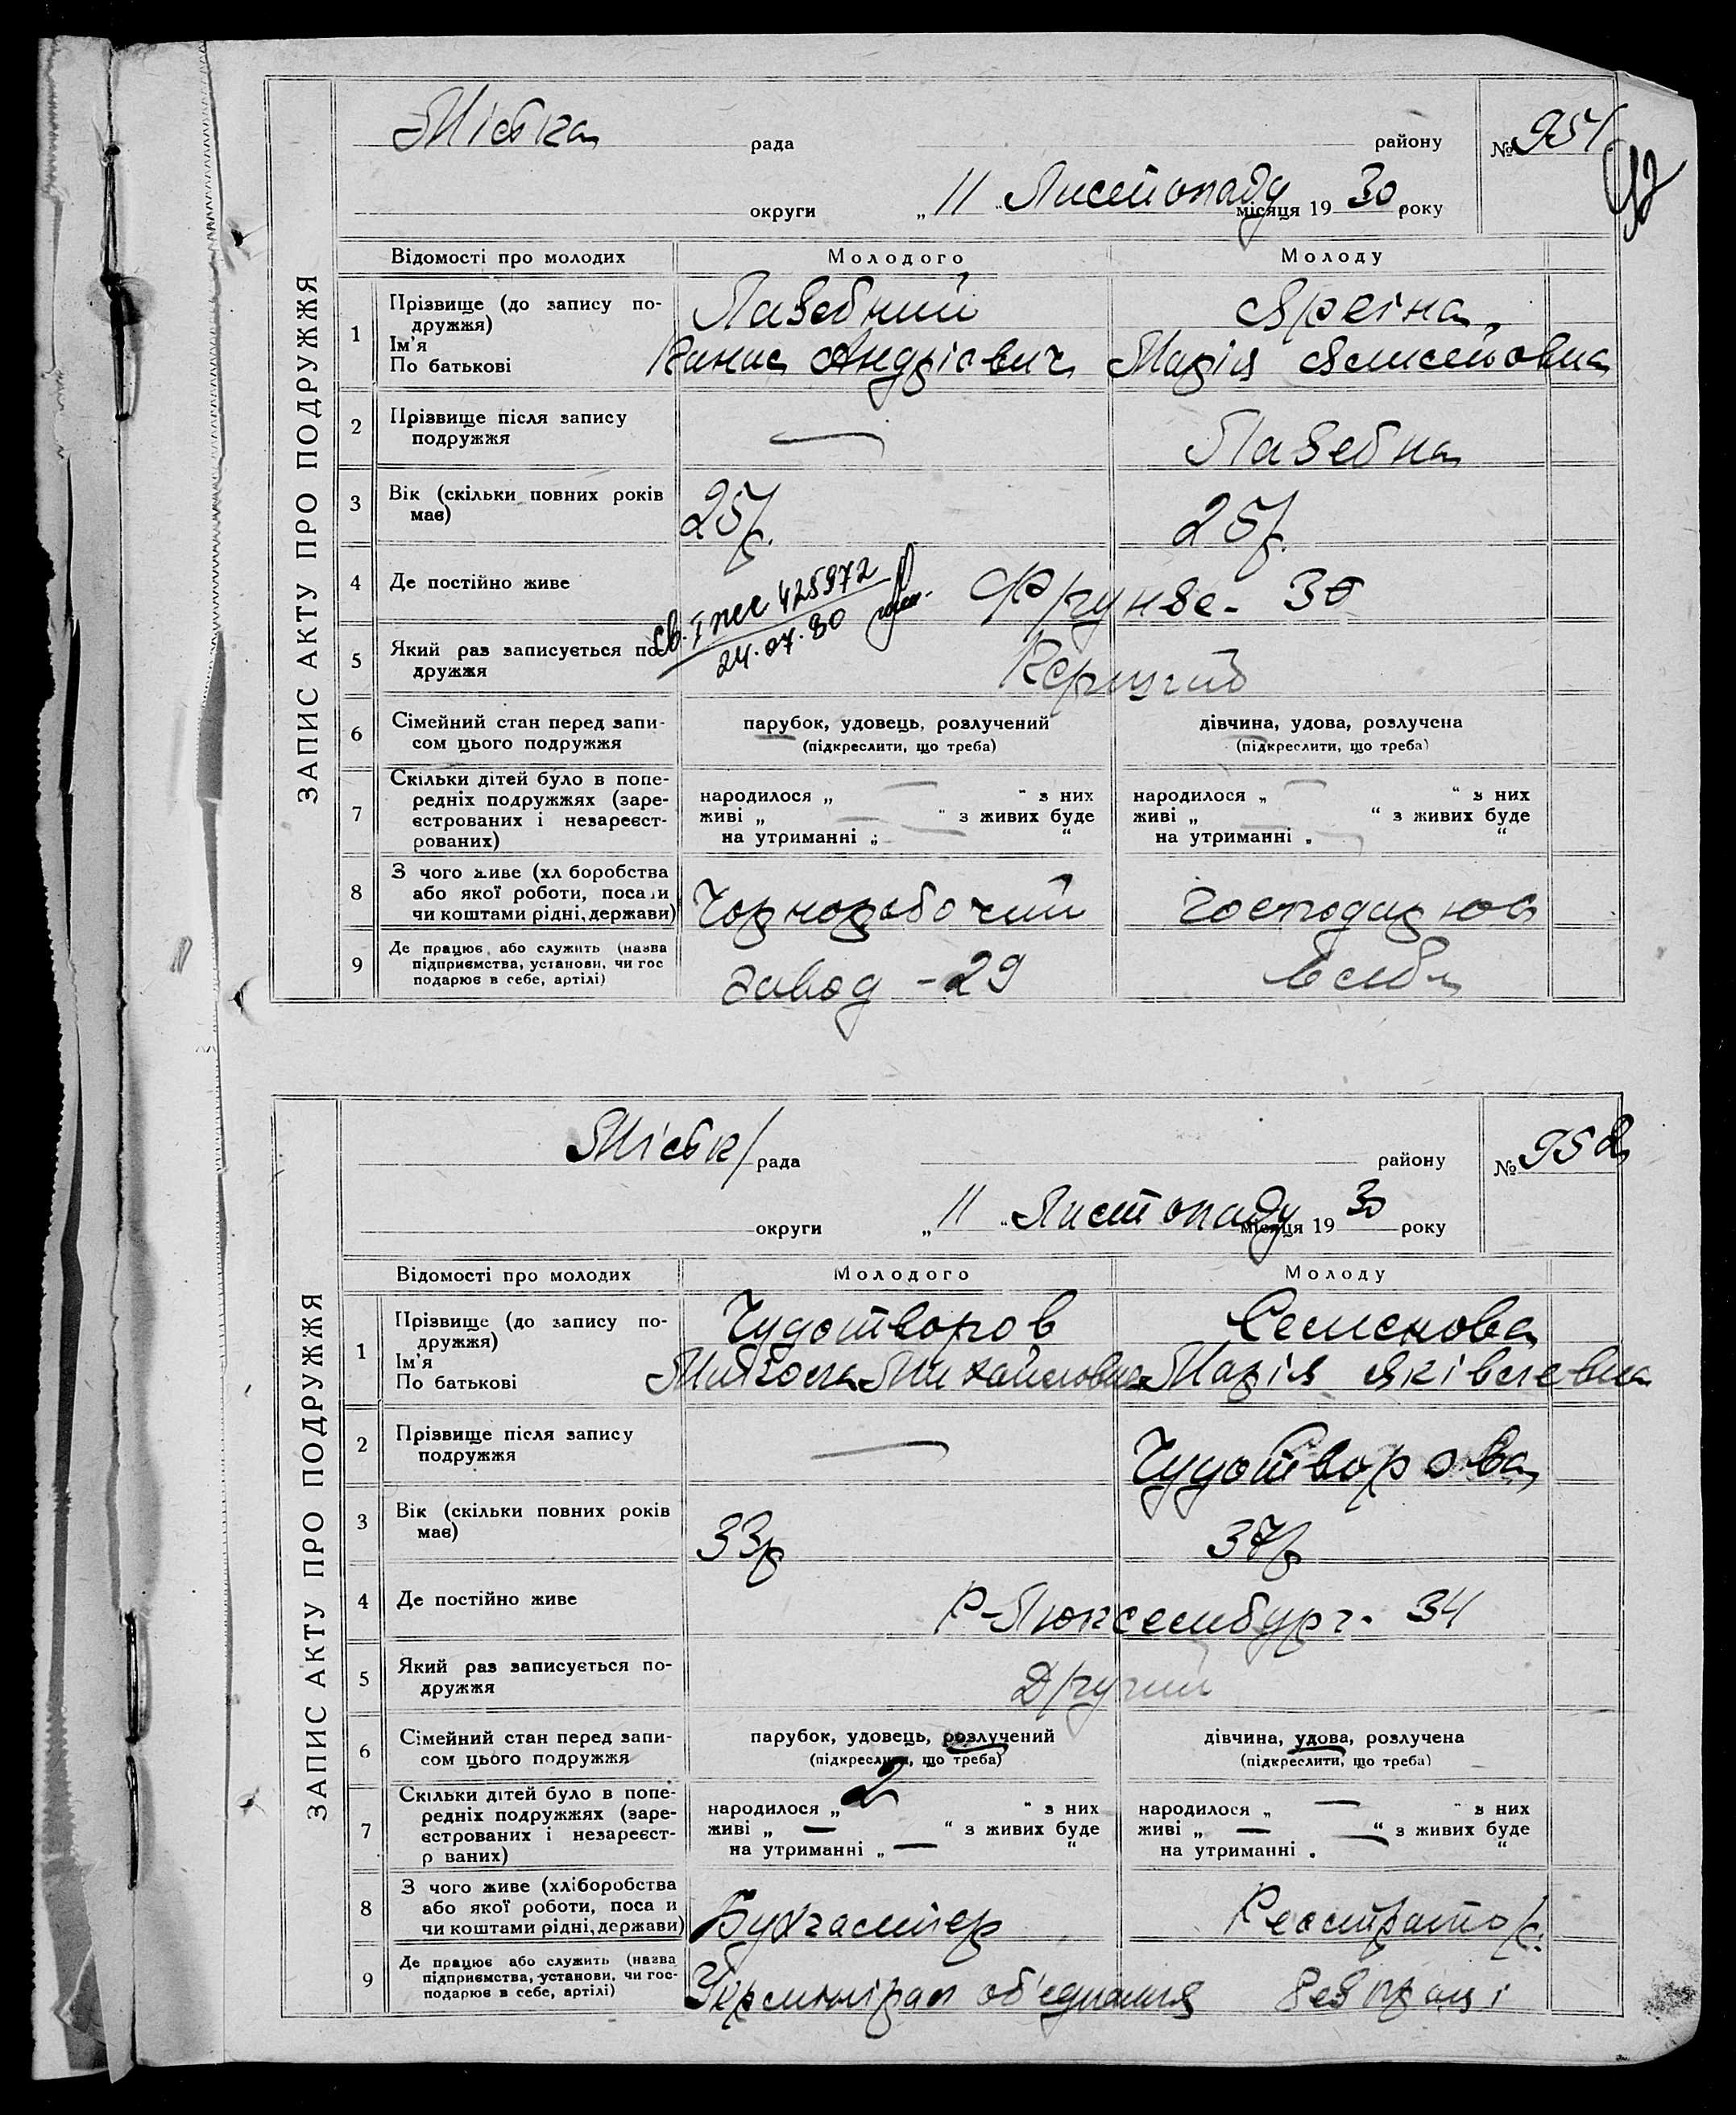 ЗАПИС АКТУ ПРО ПОДРУЖЖЯ
Міська рада району № 951
92
округи „ 11 “ Листопаду місяця 19 30 року
Відомості про молодих Молодого Молоду
1 Прізвище (до запису по-
дружжя)
Ім'я
По батькові
Лазебний
Андрієвич
Марія
2 Прізвище після запису
подружжя
— Лазебна
3 Вік (скільки повних років
має)
25 р. 25 р.
4 Де постійно живе
Фрунзе - 30
425972
24.07.80
5 Який раз записується по-
дружжя
6 Сімейний стан перед запи-
сом цього подружжя
парубок, удовець, розлучений
(підкреслити, що треба)
дівчина, удова, розлучена
(підкреслити, що треба)
7 Скільки дітей було в попе-
редніх подружжях (заре-
єстрованих і незареєст-
рованих)
народилося „ — “ з них
живі „ — “ з живих буде
на утриманні „ — “
народилося „ — “ з них
живі „ — “ з живих буде
на утриманні „ — “
8 З чого живе (хл боробства
або якої роботи, поса и
чи коштами рідні, держави)
Чорноробочий господарює
9 Де працює, або служить (назва
підприємства, установи, чи гос
подарює в себе, артілі)
завод - 29 в себе
ЗАПИС АКТУ ПРО ПОДРУЖЖЯ
Міськ/ рада району № 952
округи „ 11 “ Листопаду місяця 19 30 року
Відомості про молодих Молодого Молоду
1 Прізвище (до запису по-
дружжя)
Ім'я
По батькові
Чудотворов Семенова
Микола Михайлович Марія Яківлевна
2 Прізвище після запису
подружжя
— Чудотворова
3 Вік (скільки повних років
має)
33 р 37 р
4 Де постійно живе
Р-Люксембург - 34
5 Який раз записується по-
дружжя
Другий
6 Сімейний стан перед запи-
сом цього подружжя
парубок, удовець, розлучений
(підкреслити, що треба)
дівчина, удова, розлучена
(підкреслити, що треба)
7 Скільки дітей було в попе-
редніх подружжях (заре-
єстрованих і незареєст-
р ваних)
народилося „ 2 “ з них
живі „ — “ з живих буде
на утриманні „ — “
народилося „ — “ з них
живі „ — “ з живих буде
на утриманні „ — “
8 З чого живе (хліборобства
або якої роботи, поса и
чи коштами рідні, держави)
Бухгалтер Реєстратор.
9 Де працює або служить (назва
підприємства, установи, чи гос-
подарює в себе, артілі)
об'єднання без праці